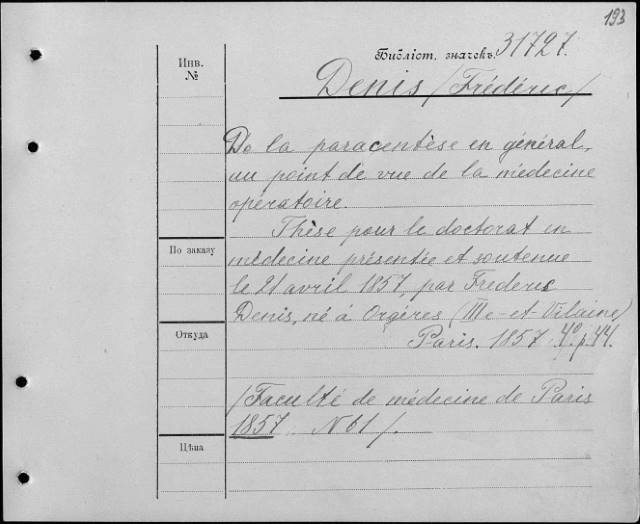 193
Инв.
№
Библіот. значекъ 31727.
Denis /Frédéric/
De la paracentèse en général,
au point de vue de la médecine
opératoire.
Thèse pour le doctorat en
По заказу
médecine présentée et soutenue
le 21 avril 1857, par Frederic
Denis, né à Orgères (Ille-et-Vilaine)
Откуда
Paris. 1857. 4° p. 44.
/Faculté de médecine de Paris
1857 N 61/.
Цѣна